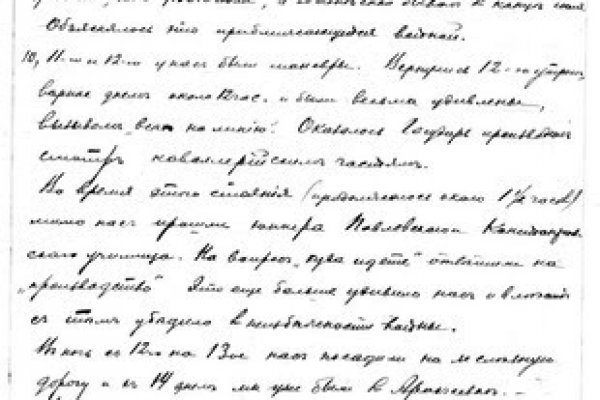 Объяснялось это приближающейся войной.
10, 11-го и 12-го у нас были маневры. Вернулись 12-го утром,
вернее днем около 12 час. и были весьма удивлены,
вызывом „всех на линию". Оказалось Государь производил
смотр кавалерийским частям.
Во время этого стояния (продолжалось около 1½ часов)
мимо нас прошли юнкера Павловского
ского училища. На вопрос „куда идете" ответили на
„производство" Это еще больше удивило нас и
с тем убедило в неизбежности войны.
В ночь с 12го на 13ое нас посадили на железную
дорогу и 14 днем мы уже были в